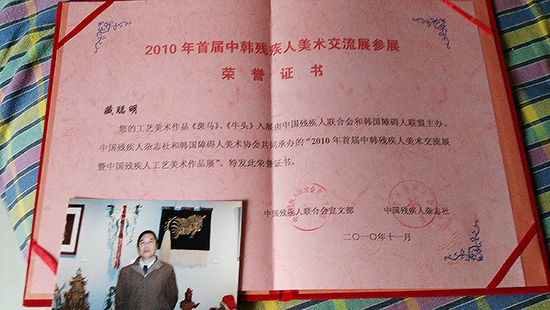 2010 年首届中韩残疾人美术交流展参展
荣誉证书
臧聪明
您的工艺美术作品《斑马》、《牛头》入展由中国残疾人联合会和韩国障碍人联盟主办、
中国残疾人杂志社和韩国障碍人美术协会共同承办的“2010 年首届中韩残疾人美术交流展
暨中国残疾人工艺美术作品展”。特发此荣誉证书。
中国残疾人联合会宣文部 中国残疾人杂志社
二〇一〇年十一月